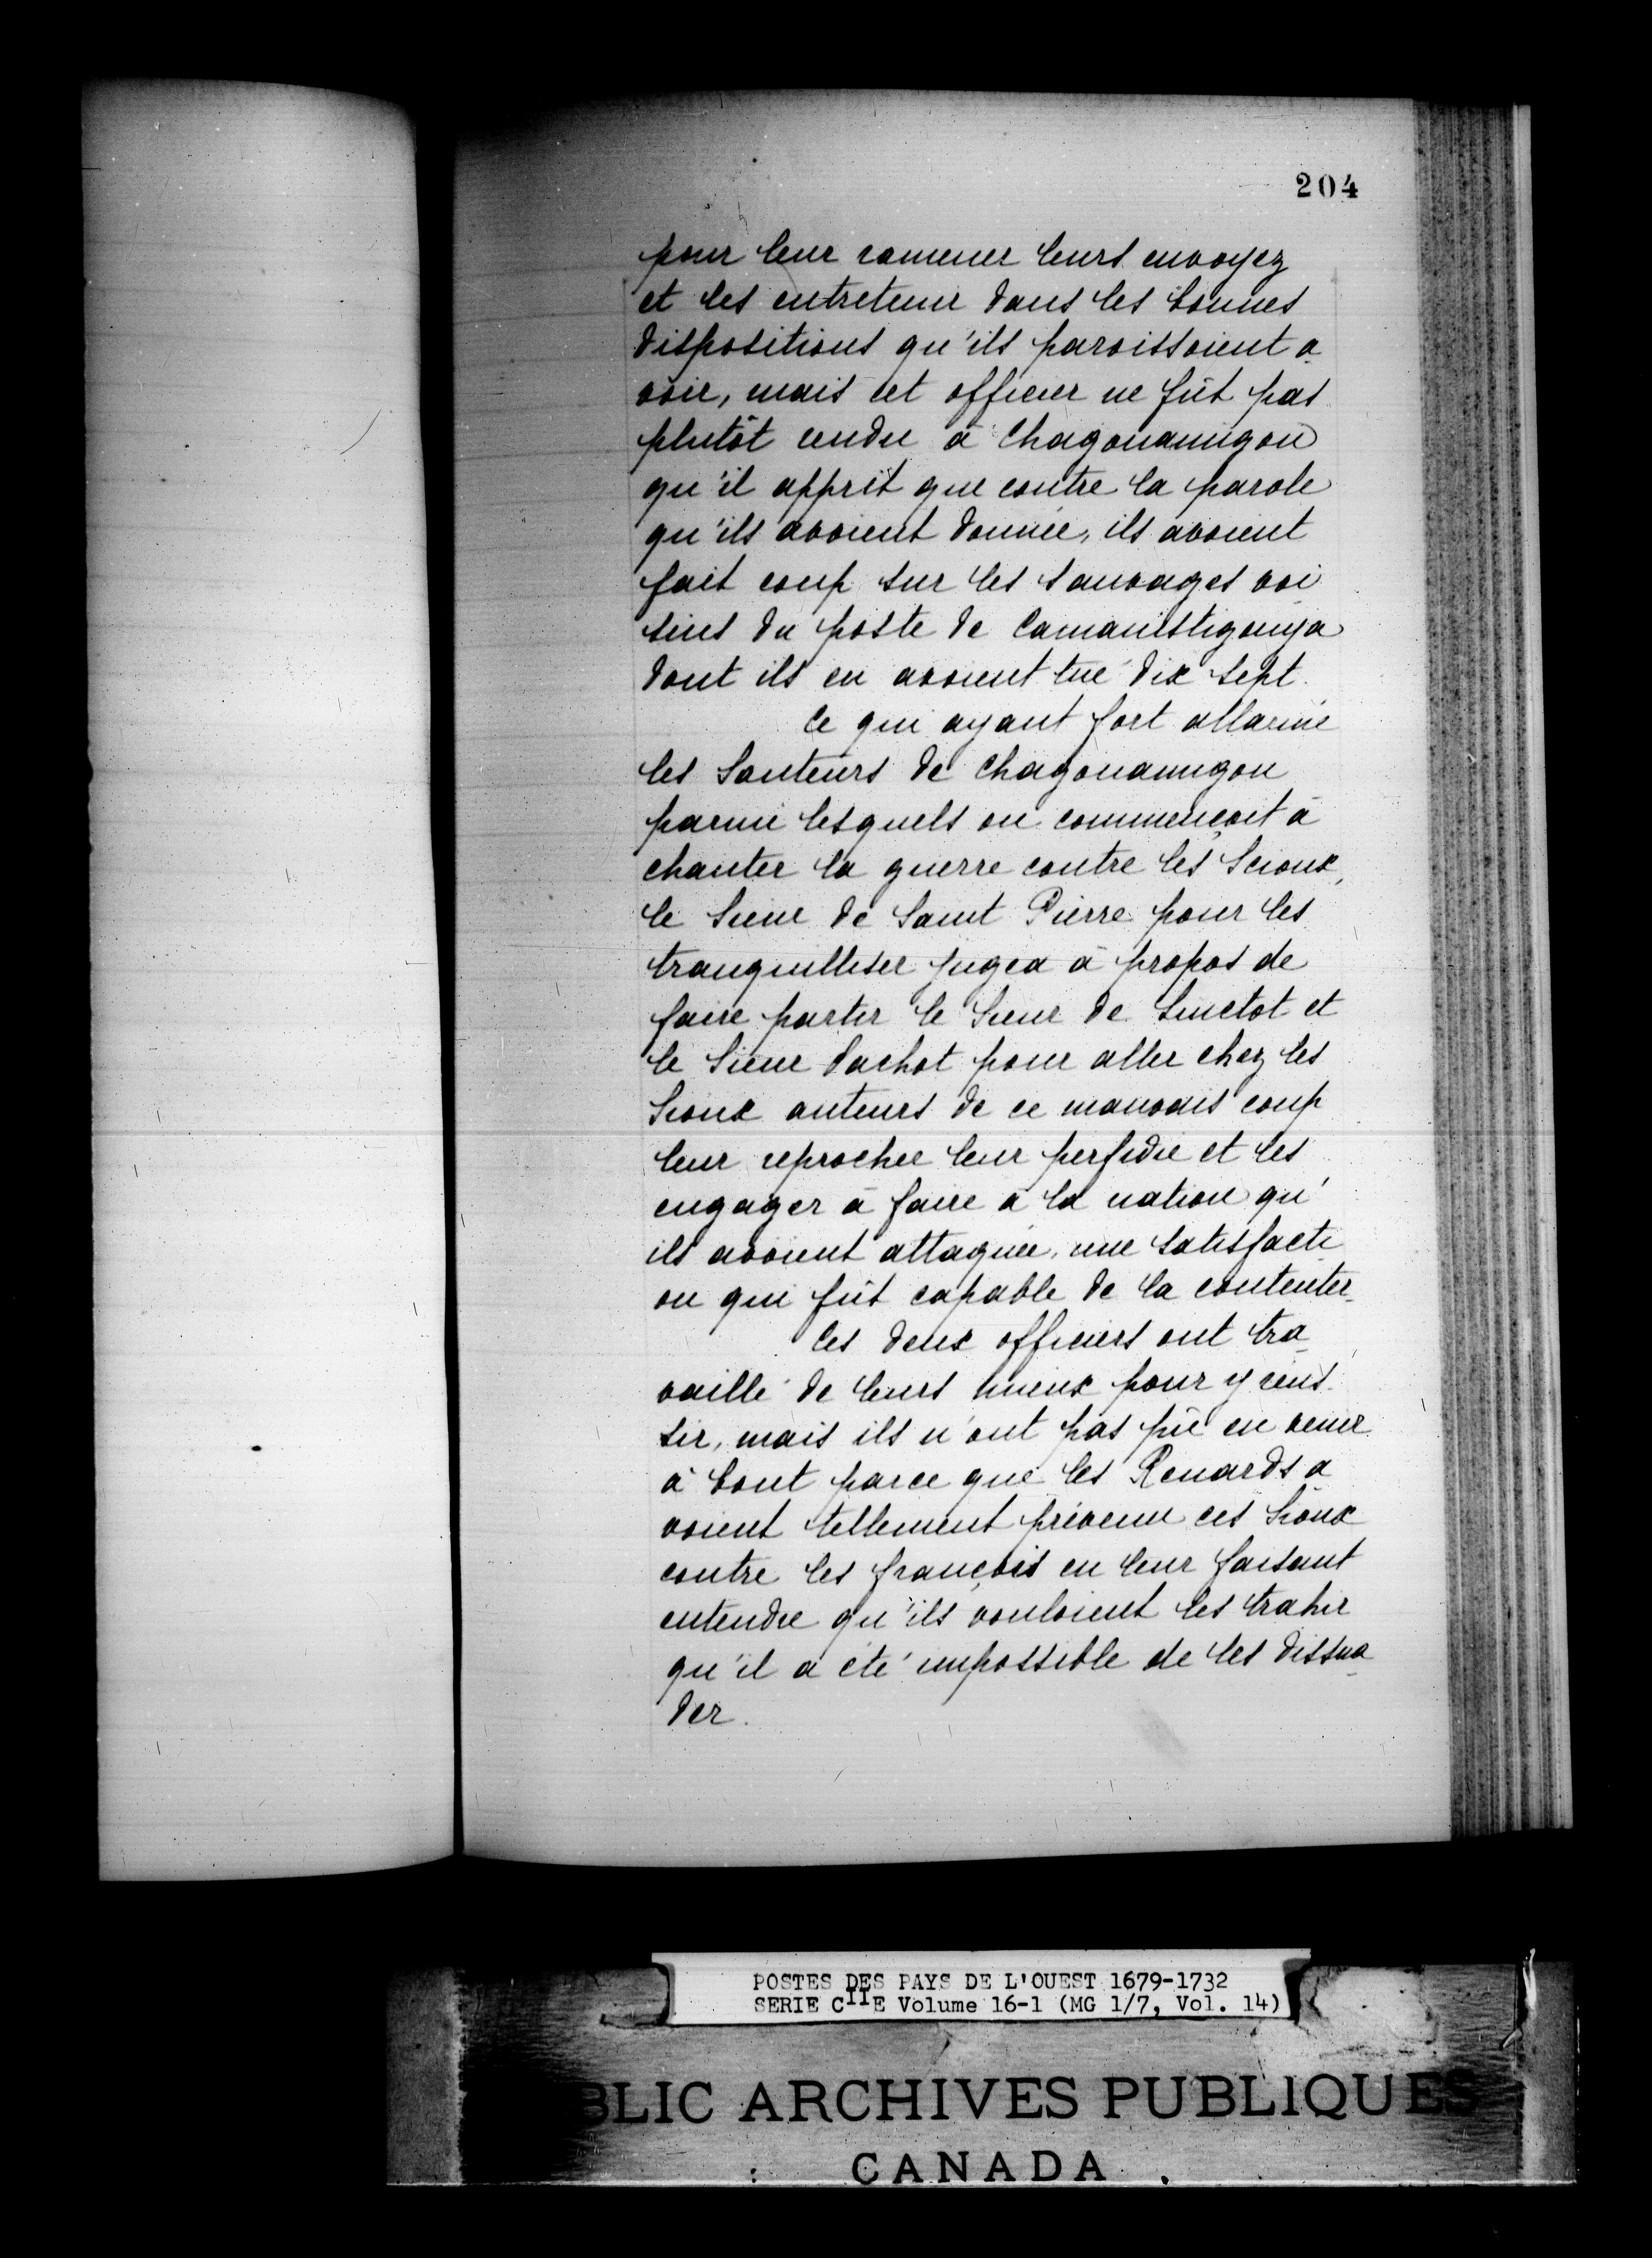 204
pour leur ramener leurs envoyez
et les entretenir dans les bonnes
dispositions qu'ils paroissoient a
voir, mais cet officier ne fût pas
plutôt rendu à Chagouamigon
qu'il apprit que contre la parole
qu'ils avoient donnée, ils avoient
fait coup sur les sauvages voi
sins du poste de Camanistigouya
dont ils en avoient tué dix sept.
Ce qui ayant fort allarmé
les Sauteurs de Chagouamigon
parmi lesquels on commençoit à
chanter la guerre contre les Scioux,
le Sieur de Saint Pierre pour les
tranquilliser jugea à propos de
faire partir le Sieur de Linctot et
le Sieur Dachot pour aller chez les
Sioux auteurs de ce mauvais coup
leur reprocher leur perfidie et les
engager à faire à la nation qu'
ils avoient attaquée, une satisfacti
on qui fût capable de la contenter.
Ces deux officiers ont tra
vaillé de leurs mieux pour y réus
sir, mais ils n'ont pas pû en venir
à bout parce que les Renards a
voient tellement prévenu ces Sioux
contre les françois en leur faisant
entendre qu'ils vouloient les trahir
qu'il a été impossible de les dissua
der.
POSTES DES PAYS DE L'OUEST 1679-1732
SERIE CIIE Volume 16-1 (MG 1/7, Vol. 14)
BLIC ARCHIVES PUBLIQUES
CANADA